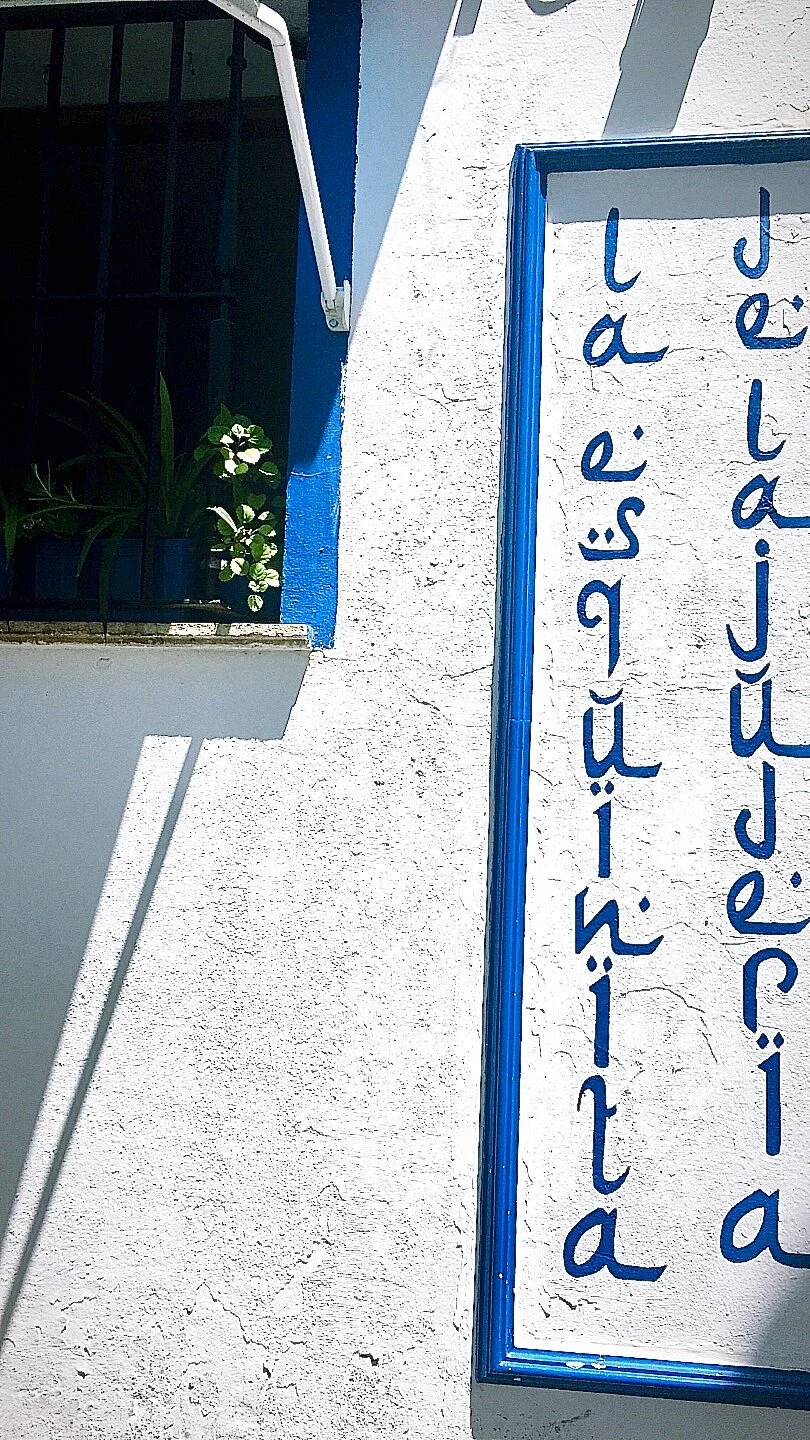 la esquinita
de la juderia